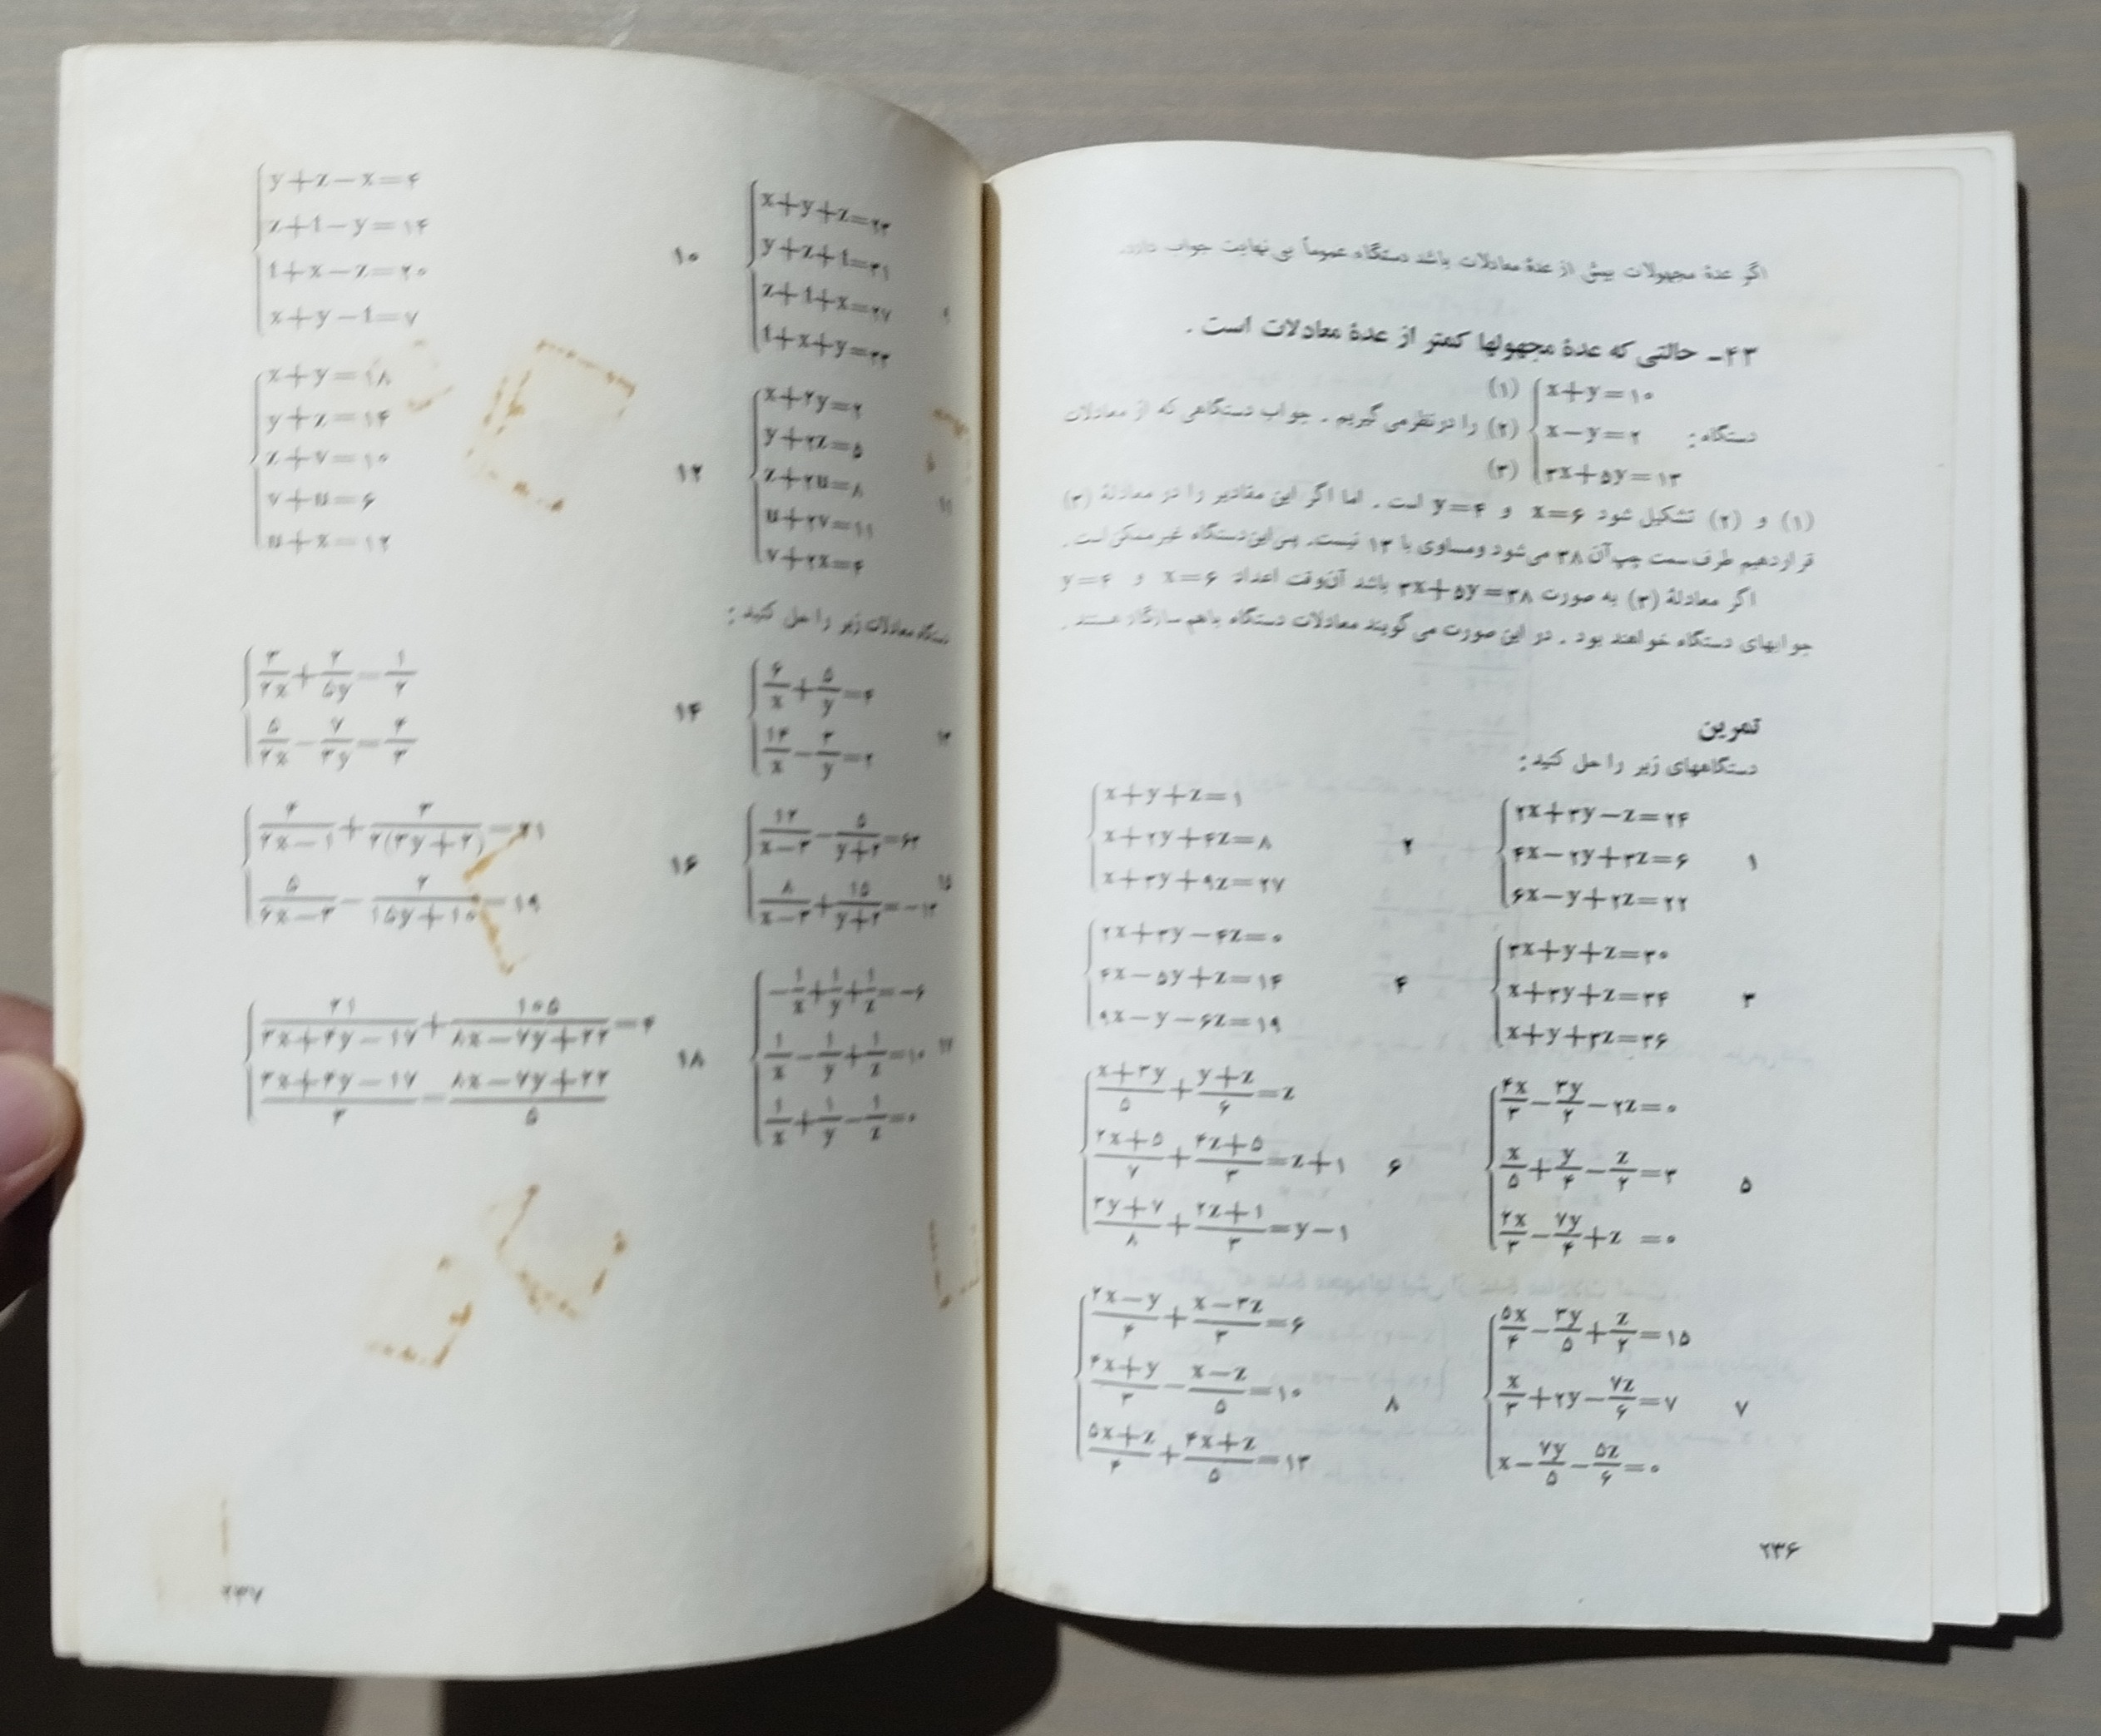 اگر عدهٔ مجهولات بیش از عدهٔ معادلات باشد دستگاه عموماً بی نهایت جواب دارد.
۴۳- حالتی که عدهٔ مجهولها کمتر از عدهٔ معادلات است .
x+y=۱۰ (۱)
دستگاه : x−y=۲ (۲) را در نظر می گیریم . جواب دستگاهی که از معادلات
۳x+۵y=۱۳ (۳)
(۱) و (۲) تشکیل شود x=۶ و y=۴ است . اما اگر این مقادیر را در معادلهٔ (۳)
قرار دهیم طرف سمت چپ آن ۳۸ می شود و مساوی با ۱۳ نیست. پس این دستگاه غیر ممکن است .
اگر معادلهٔ (۳) به صورت ۳x+۵y=۳۸ باشد آن وقت اعداد x=۶ و y=۴
جوابهای دستگاه خواهند بود . در این صورت می گویند معادلات دستگاه با هم سازگار هستند .
تمرین
دستگاههای زیر را حل کنید :
۱
۲x+۳y−z=۲۴
۴x−۲y+۳z=۶
۶x−y+۲z=۲۲
۲
x+y+z=۱
x+۲y+۴z=۸
x+۳y+۹z=۲۷
۳
۳x+y+z=۳۰
x+۳y+z=۳۴
x+y+۳z=۳۶
۴
۲x+۳y−۴z=۰
۴x−۵y+z=۱۴
۹x−y−۶z=۱۹
۵
۴x/۳−۳y/۲−۲z=۰
x/۵+y/۴−z/۲=۳
۲x/۳−۷y/۴+z=۰
۶
(x+۳y)/۵+(y+z)/۶=z
(۲x+۵)/۷+(۴z+۵)/۳=z+۱
(۳y+۷)/۸+(۲z+۱)/۳=y−۱
۷
۵x/۴−۳y/۵+z/۲=۱۵
x/۳+۲y−۷z/۶=۷
x−۷y/۵−۵z/۶=۰
۸
(۲x−y)/۴+(x−۳z)/۳=۶
(۴x+y)/۳−(x−z)/۵=۱۰
(۵x+z)/۴+(۴x+z)/۵=۱۳
۲۳۶
۹
x+y+z=۲۳
y+z+t=۳۱
z+t+x=۲۷
t+x+y=۳۳
۱۰
y+z−x=۴
z+t−y=۱۴
t+x−z=۲۰
x+y−t=۷
۱۱
x+۲y=۲
y+۲z=۵
z+۲u=۸
u+۲v=۱۱
v+۲x=۴
۱۲
x+y=۱۸
y+z=۱۴
z+v=۱۰
v+u=۶
u+x=۱۲
دستگاه معادلات زیر را حل کنید :
۱۳
۶/x+۵/y=۴
۱۴/x−۳/y=۲
۱۴
۳/۲x+۲/۵y=۱/۲
۵/۲x−۷/۳y=۴/۳
۱۵
۱۲/(x−۳)−۵/(y+۲)=۶۳
۸/(x−۳)+۱۵/(y+۲)=−۱۳
۱۶
۴/(۲x−۱)+۳/۲(۳y+۲)=۲۱
۵/(۶x−۳)−۲/(۱۵y+۱۰)=۱۹
۱۷
−۱/x+۱/y+۱/z=−۶
۱/x−۱/y+۱/z=۱۰
۱/x+۱/y−۱/z=۰
۱۸
۲۱/(۳x+۴y−۱۷)+۱۰۵/(۸x−۷y+۲۲)=۴
(۳x+۴y−۱۷)/۳=(۸x−۷y+۲۲)/۵
۲۳۷